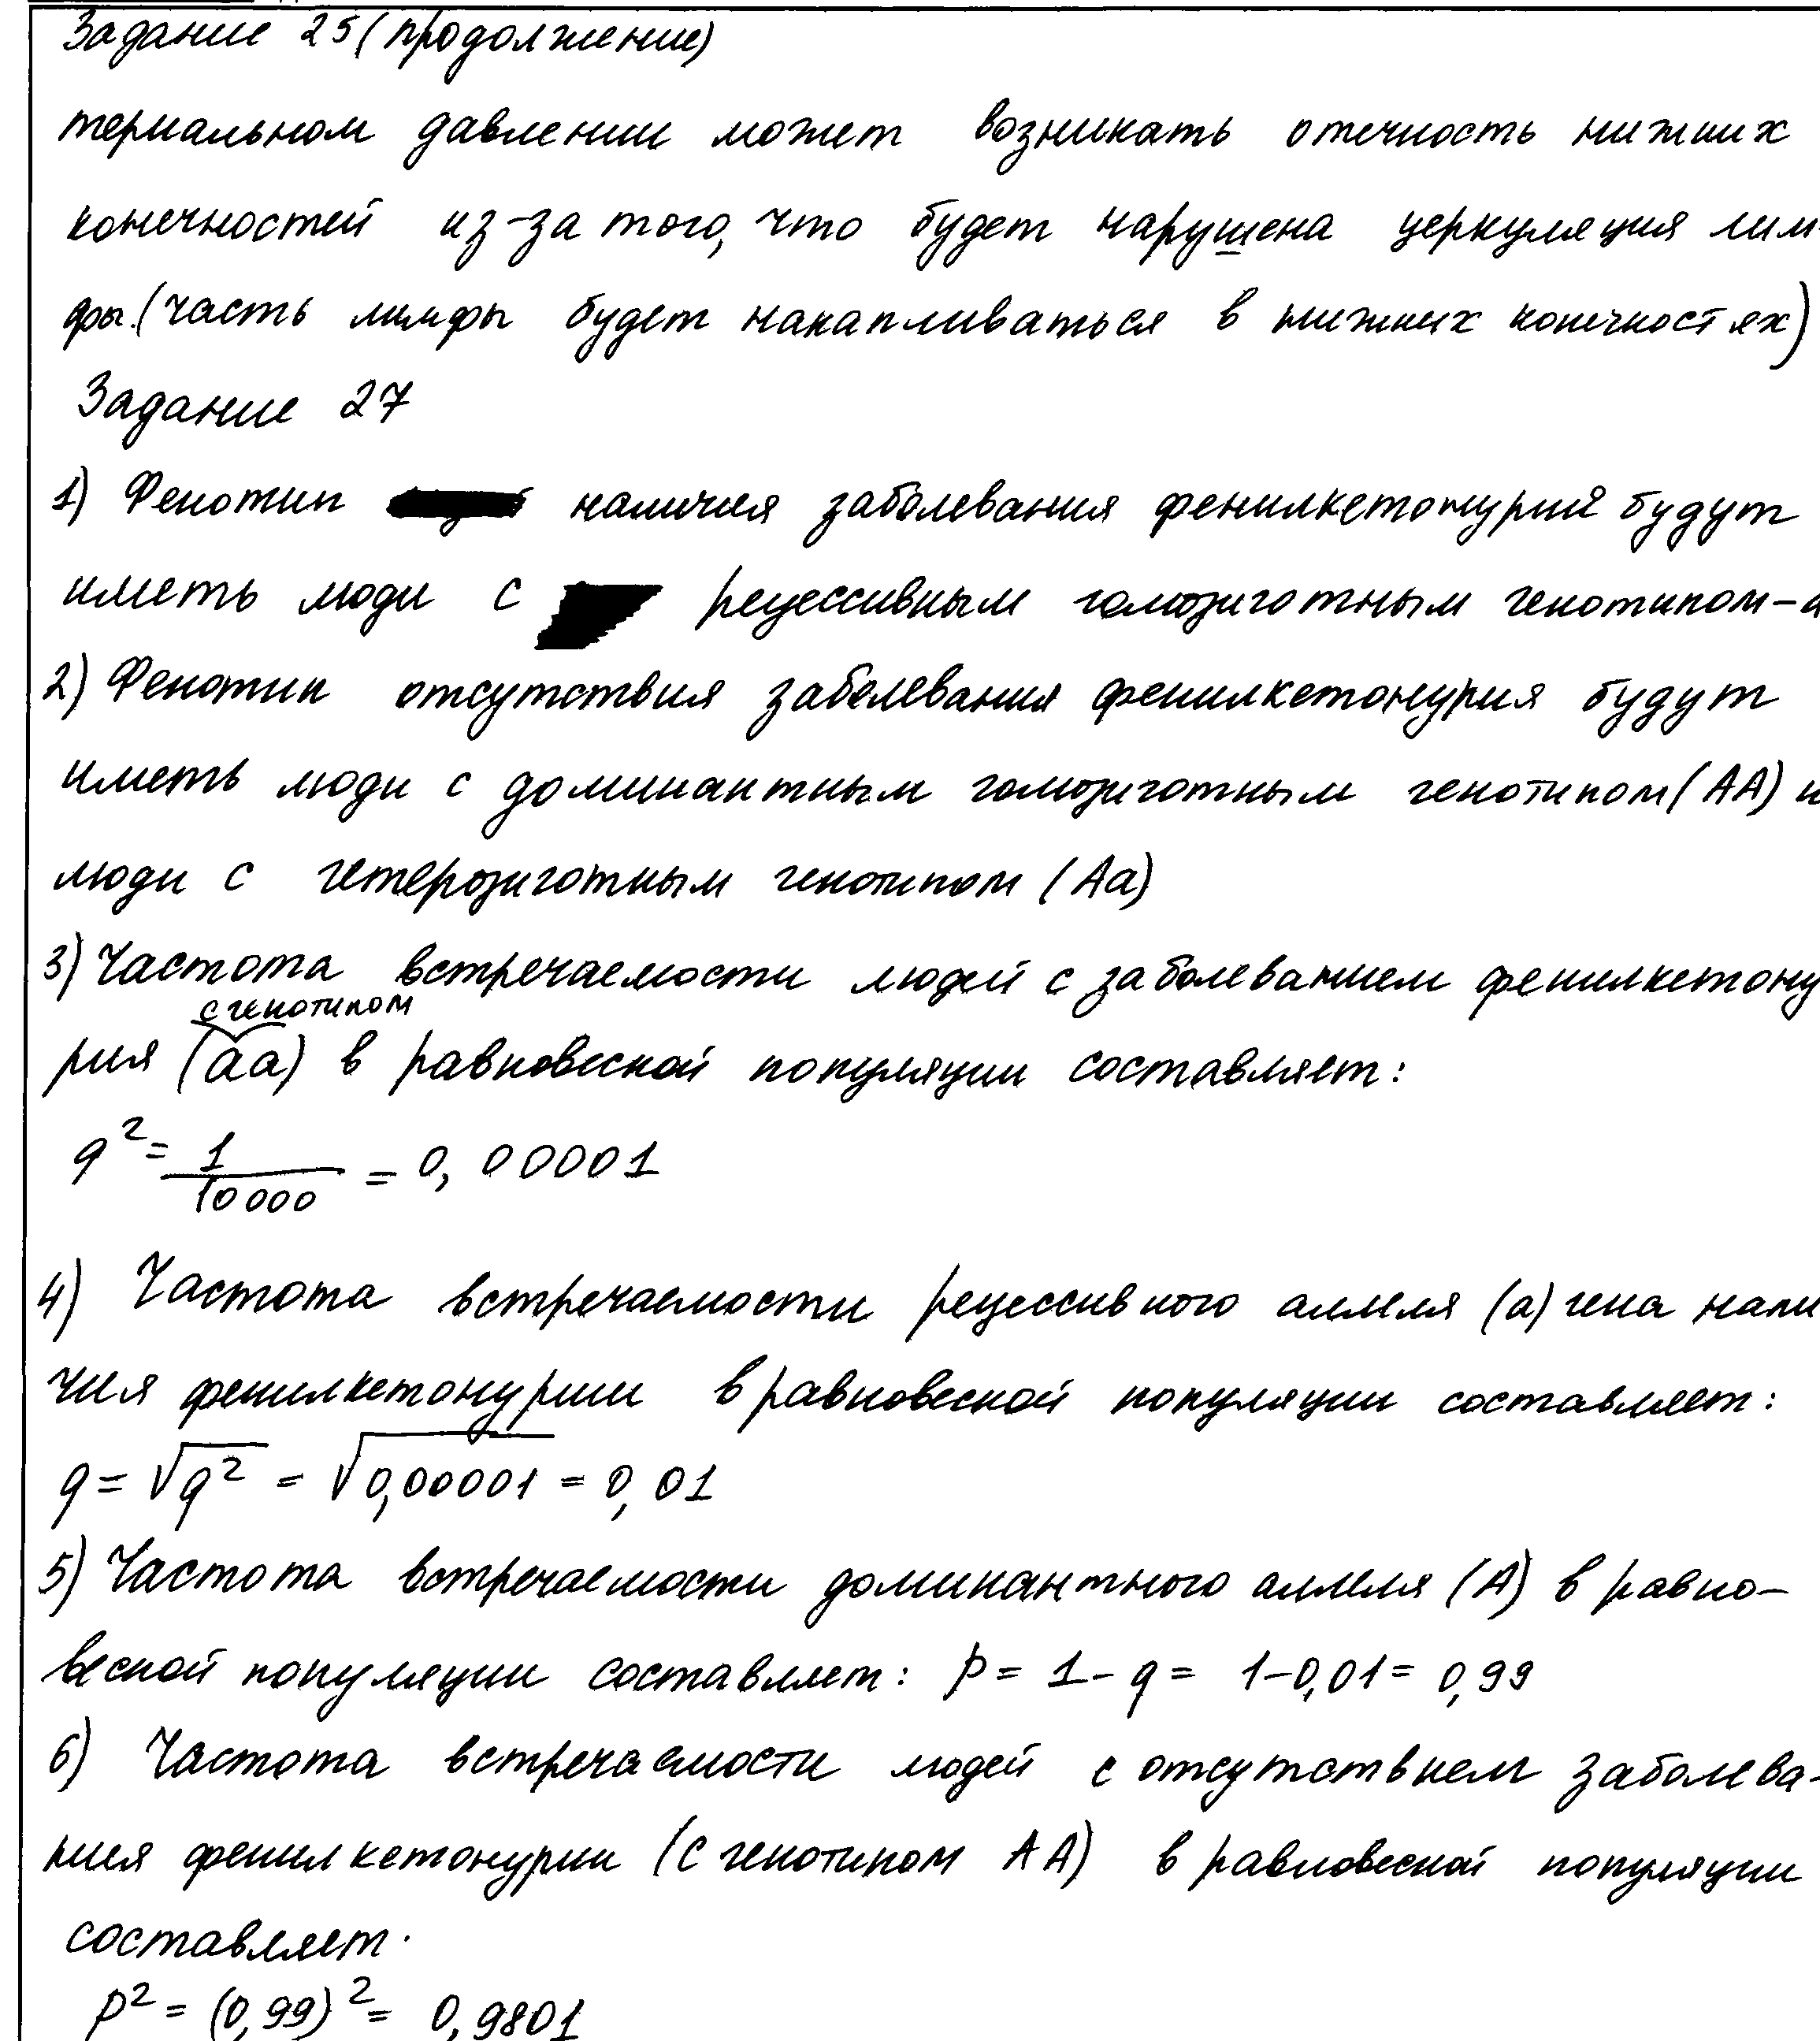 Задание 25 (продолжение)
териальном давлении может возникать отечность нижних
конечностей из-за того, что будет нарушена церкуляция лим-
фы. (часть лимфы будет накапливаться в нижних конечностях)
Задание 27
1) Фенотип наличия заболевания фенилкетонурий будут
иметь люди с рецессивным гомозиготным генотипом-а
2) Фенотип отсутствия заболевания фенилкетонурия будут
иметь люди с доминантным гомозиготным генотипом (АА) и
люди с гетерозиготным генотипом (Аа)
3) Частота встречаемости людей с заболеванием фенилкетону
с генотипом
рия (аа) в равновесной популяции составляет:
q² = 1/10000 = 0,00001
4) Частота встречаемости рецессивного аллеля (а) гена нали
чия фенилкетонурии в равновесной популяции составляет:
q = √q² = √0,00001 = 0,01
5) Частота встречаемости доминантного аллеля (А) в равно-
весной популяции составляет: p = 1 - q = 1-0,01 = 0,99
6) Частота встречаемости людей с отсутствием заболева-
ния фенилкетонурии (с генотипом АА) в равновесной популяции
составляет.
p² = (0,99)² = 0,9801